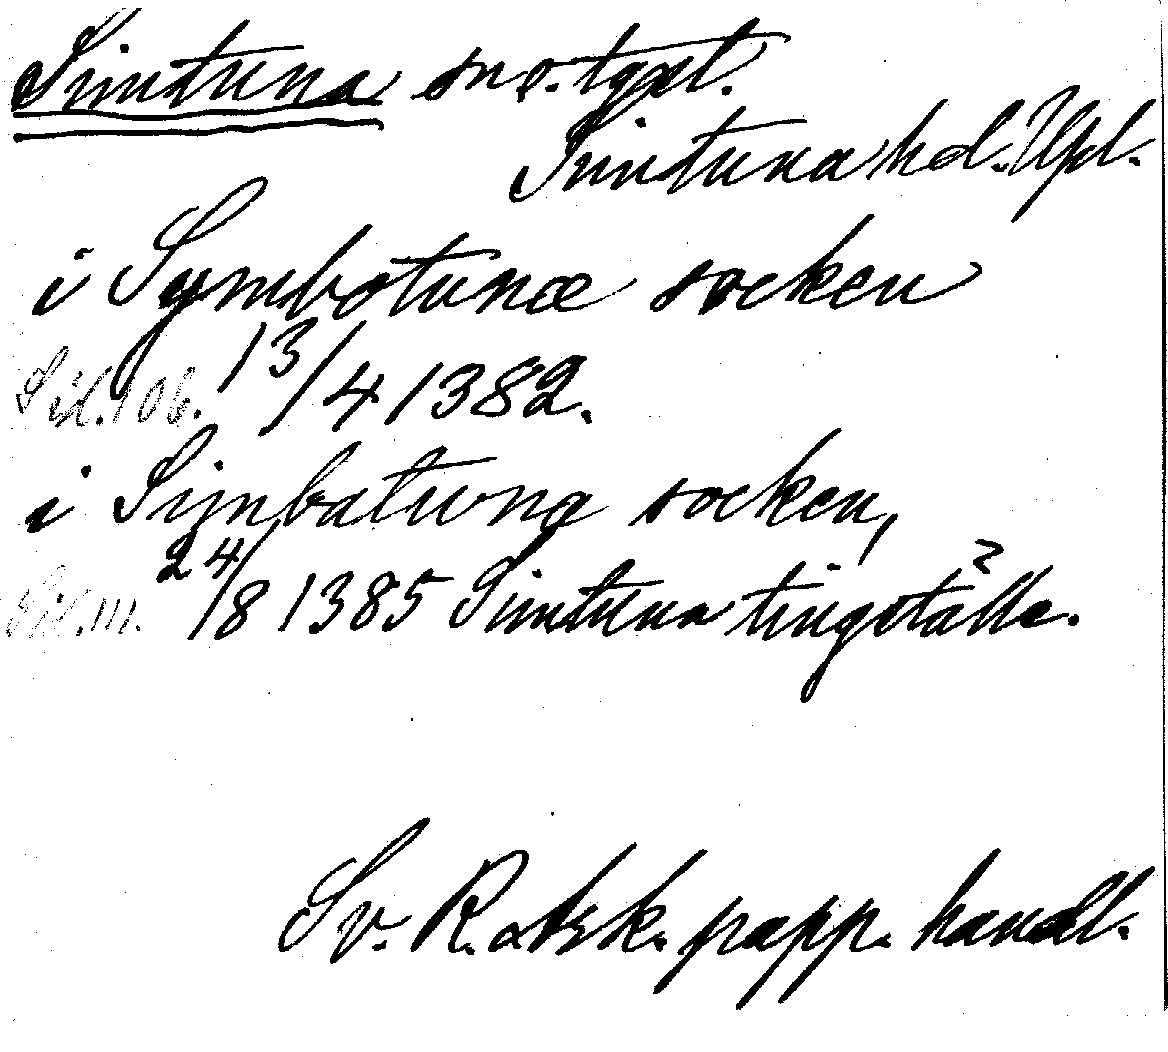 Simtuna sn o. tgst.
Simtuna hd. Upl.
i Symbotunæ socken
Sid. 106. 13/4 1382.
i Simbatuna socken,
Sid. 111. 24/8 1385 Simtuna tingställe.
Sv. R. ark. papp. handl.